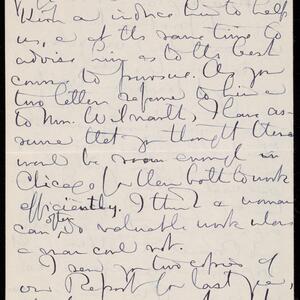 Wish a induce him to help
us, & at the same time to
advise him as to the best
course to pursue. As you
two letters refer me to him &
to Mrs. Wilmarth, I have as-
sumed that you thought there
would be room enough in
Chicago for them both to work
efficiently. I think a woman
can often do valuable work where
a man could not.
I send you two copies of
our Report for last year,